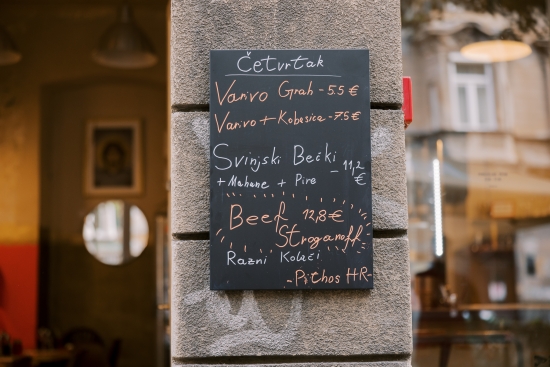 Četvrtak
Varivo Grah - 5.5 €
Varivo + Kobasica - 7.5 €
Svinjski Bečki - 11,2 €
+ Mahune + Pire
Beef 12,8 €
Stroganoff
Razni Kolači
- Pithos HR -